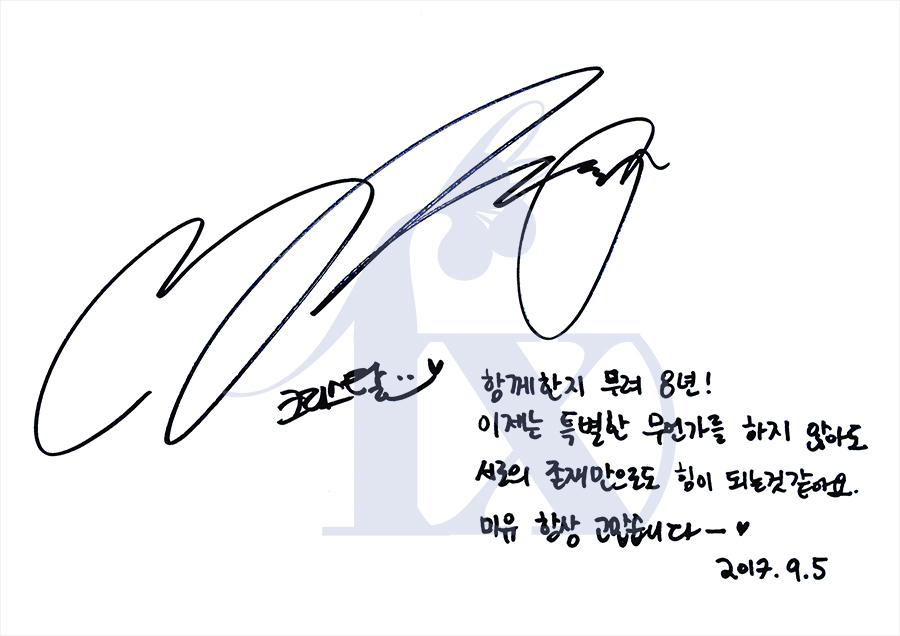 fx
크리스탈
함께한지 무려 8년!
이제는 특별한 무언가를 하지 않아도
서로의 존재만으로도 힘이 되는것같아요.
미유 항상 고맙습니다ー♥
2017.9.5